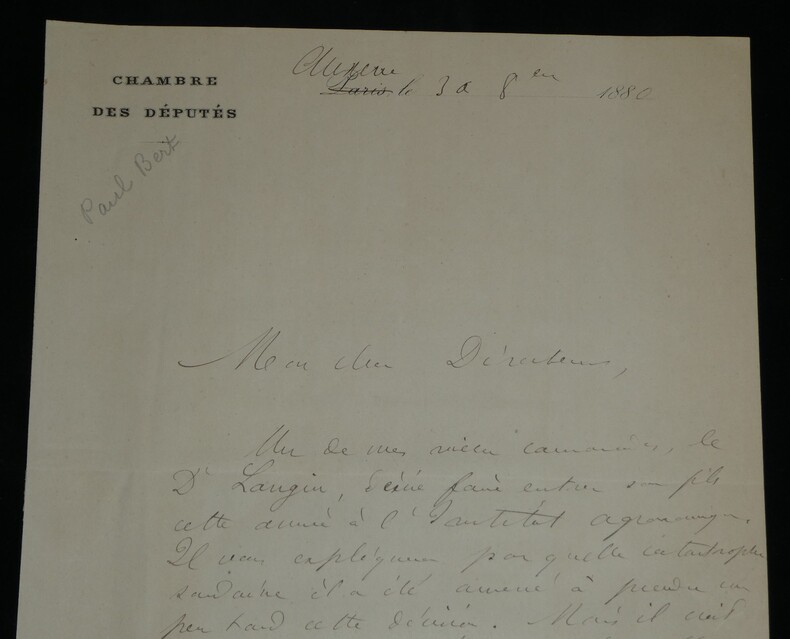 CHAMBRE
DES DÉPUTÉS
Paul Bert
Auxerre
Paris le 30 8bre 1880
Mon cher Directeur,
Un de mes vieux camarades, le
Dr Langin, désire faire entrer son fils
cette année à l'Institut agronomique.
Il vous expliquera par quelle catastrophe
soudaine il a été amené à prendre un
peu tard cette décision. Mais il